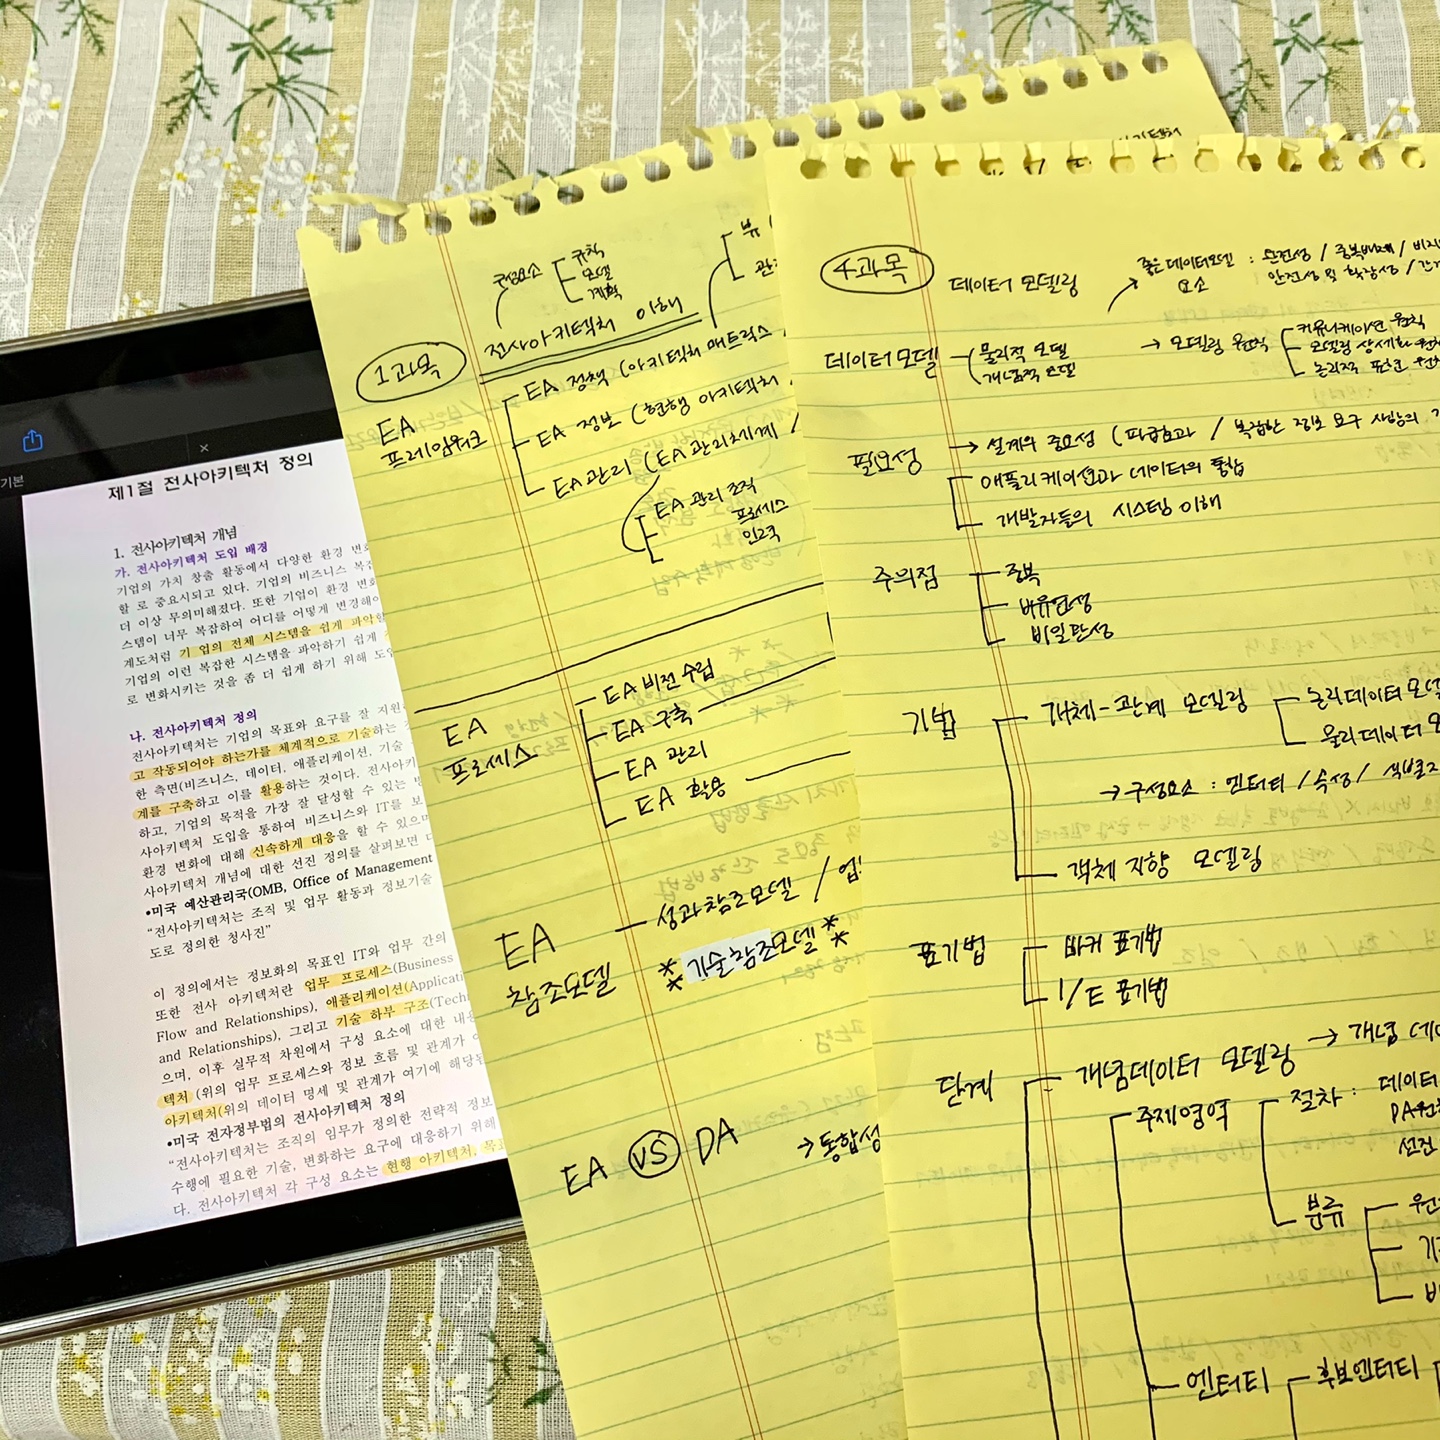 기본
제1절 전사아키텍처 정의
1. 전사아키텍처 개념
가. 전사아키텍처 도입 배경
기업의 가치 창출 활동에서 다양한 환경
할 로 중요시되고 있다. 기업의 비즈니스
더 이상 무의미해졌다. 또한 기업이 환경
스템이 너무 복잡하여 어디를 어떻게 변경해야
계도처럼 기 업의 전체 시스템을 쉽게 파악할
기업의 이런 복잡한 시스템을 파악하기 쉽게
로 변화시키는 것을 좀 더 쉽게 하기 위해
나. 전사아키텍처 정의
전사아키텍처는 기업의 목표와 요구를 잘
고 작동되어야 하는가를 체계적으로 기술하는
한 측면(비즈니스, 데이터, 애플리케이션, 기술
계를 구축하고 이를 활용하는 것이다. 전사아키
하고, 기업의 목적을 가장 잘 달성할 수 있는
사아키텍처 도입을 통하여 비즈니스와 IT를
환경 변화에 대해 신속하게 대응을 할 수 있으며
사아키텍처 개념에 대한 선진 정의를 살펴보면
•미국 예산관리국(OMB, Office of Management
“전사아키텍처는 조직 및 업무 활동과 정보기술
도로 정의한 청사진”
이 정의에서는 정보화의 목표인 IT와 업무 간의
또한 전사 아키텍처란 업무 프로세스(Business
Flow and Relationships), 애플리케이션(Applicati
and Relationships), 그리고 기술 하부 구조(Tech
으며, 이후 실무적 차원에서 구성 요소에 대한
텍처 (위의 업무 프로세스와 정보 흐름 및 관계가
아키텍처(위의 데이터 명세 및 관계가 여기에 해당
•미국 전자정부법의 전사아키텍처 정의
“전사아키텍처는 조직의 임무가 정의한 전략적 정보
수행에 필요한 기술, 변화하는 요구에 대응하기 위해
다. 전사아키텍처 각 구성 요소는 현행 아키텍처, 목표
1과목
구성요소
규칙
모델
계획
전사아키텍처 이해
EA 프레임워크
EA 정책 (아키텍처 매트릭스
EA 정보 (현행 아키텍처
EA 관리 (EA 관리체계 /
EA 관리 조직
프로세스
인력
EA 프로세스
EA 비전 수립
EA 구축
EA 관리
EA 활용
EA 참조모델
성과참조모델 / 업
** 기술참조모델 **
EA VS DA
→ 통합성
4과목
데이터 모델링
좋은 데이터모델 요소 : 완전성 / 중복배제 / 비지
안전성 및 확장성 / 간
데이터모델
물리적 모델
개념적 모델
→ 모델링 원칙
커뮤니케이션 원칙
모델링 상세화 원칙
논리적 표현 원칙
필요성
→ 설계의 중요성 (파급효과 / 복잡한 정보 요구 사항의
애플리케이션과 데이터의 통합
개발자들의 시스템 이해
주의점
중복
비유연성
비일관성
기법
개체-관계 모델링
논리데이터 모델
물리데이터 모
→ 구성요소 : 엔터티 / 속성 / 식별자
객체 지향 모델링
표기법
바커 표기법
I/E 표기법
단계
개념데이터 모델링 → 개념 데이
주제영역
절차 : 데이터
선진
분류
엔터티
후보엔터티